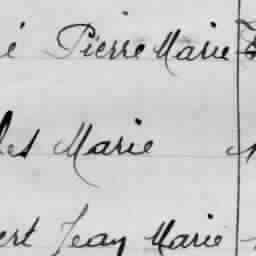 é Pierre Marie
les Marie
ert Jean Marie